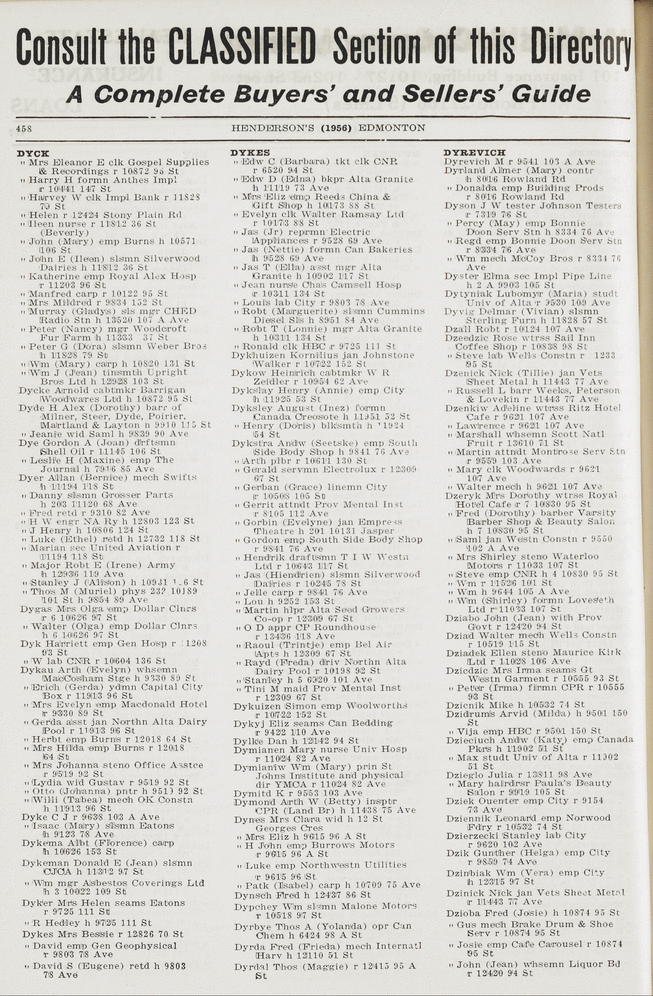 Consult the CLASSIFIED Section of this Directory
A Complete Buyers' and Sellers' Guide
458 HENDERSON'S (1956) EDMONTON
DYCK
" Mrs Eleanor E clk Gospel Supplies
& Recordings r 10872 95 St
" Harry H formn Anthes Impl
r 10441 147 St
" Harvey W clk Impl Bank r 11828
70 St
" Helen r 12424 Stony Plain Rd
" Ileen nurse r 11812 36 St
(Beverly)
" John (Mary) emp Burns h 10571
106 St
" John E (Ileen) slsmn Silverwood
Dairies h 11812 36 St
" Katherine emp Royal Alex Hosp
r 11203 96 St
" Manfred carp r 10122 95 St
" Mrs Mildred r 9834 152 St
" Murray (Gladys) sls mgr CHED
Radio Stn h 13520 107 A Ave
" Peter (Nancy) mgr Woodcroft
Fur Farm h 11333 37 St
" Peter G (Dora) slsmn Weber Bros
h 11828 79 St
" Wm (Mary) carp h 10820 131 St
" Wm J (Jean) tinsmth Upright
Bros Ltd h 12928 103 St
Dycke Arnold cabtmkr Barrigan
Woodwares Ltd h 10872 95 St
Dyde H Alex (Dorothy) barr of
Milner, Steer, Dyde, Poirier,
Martland & Layton h 9910 115 St
" Jeanie wid Saml h 9839 90 Ave
Dye Gordon A (Joan) drftsmn
Shell Oil r 11145 106 St
" Leslie H (Maxine) emp The
Journal h 7916 85 Ave
Dyer Allan (Bernice) mech Swifts
h 11194 118 St
" Danny slsmn Grosser Parts
h 203 11120 68 Ave
" Fred retd r 9310 82 Ave
" H W engr NA Ry h 12803 123 St
" J Henry h 10806 124 St
" Luke (Ethel) retd h 12732 118 St
" Marian sec United Aviation r
11194 118 St
" Major Robt E (Irene) Army
h 12936 119 Ave
" Stanley J (Alison) h 10931 St
" Thos M (Muriel) phys 232 10189
101 St h 9854 89 Ave
Dygas Mrs Olga emp Dollar Clnrs
r 6 10626 97 St
" Walter (Olga) emp Dollar Clnrs
h 6 10626 97 St
Dyk Harriett emp Gen Hosp r 1208
93 St
" W lab CNR r 10604 136 St
Dykau Arth (Evelyn) whsemn
MacCosham Stge h 9330 89 St
" Erich (Gerda) ydmn Capital City
Box r 11913 96 St
" Mrs Evelyn emp Macdonald Hotel
r 9330 89 St
" Gerda asst jan Northn Alta Dairy
Pool r 11913 96 St
" Herbt emp Burns r 12018 64 St
" Mrs Hilda emp Burns r 12018
64 St
" Mrs Johanna steno Office Asstce
r 9519 92 St
" Lydia wid Gustav r 9519 92 St
" Otto (Johanna) pntr h 9519 92 St
" Willi (Tabea) mech OK Constn
h 11913 96 St
Dyke C J r 9638 103 A Ave
" Isaac (Mary) slsmn Eatons
h 9123 78 Ave
Dykema Albt (Florence) carp
h 10626 153 St
Dykeman Donald E (Jean) slsmn
CJCA h 11312 97 St
" Wm mgr Asbestos Coverings Ltd
h 3 10022 109 St
Dyker Mrs Helen seams Eatons
r 9725 111 St
" R Hedley h 9725 111 St
Dykes Mrs Bessie r 12826 70 St
" David emp Gen Geophysical
r 9803 78 Ave
" David S (Eugene) retd h 9803
78 Ave
DYKES
" Edw C (Barbara) tkt clk CNR
r 6520 94 St
" Edw D (Edna) bkpr Alta Granite
h 11119 73 Ave
" Mrs Eliz emp Reeds China &
Gift Shop h 10173 88 St
" Evelyn clk Walter Ramsay Ltd
r 10173 88 St
" Jas (Jr) reprmn Electric
Appliances r 9528 69 Ave
" Jas (Nettie) formn Can Bakeries
h 9528 69 Ave
" Jas T (Ella) asst mgr Alta
Granite h 10902 117 St
" Jean nurse Chas Camsell Hosp
r 10311 134 St
" Louis lab City r 9803 78 Ave
" Robt (Marguerite) slsmn Cummins
Diesel Sls h 8951 84 Ave
" Robt T (Lonnie) mgr Alta Granite
h 10311 134 St
" Ronald clk HBC r 9725 111 St
Dykhuizen Kornilius jan Johnstone
Walker r 10722 152 St
Dykow Heinrich cabtmkr W R
Zeidler r 10954 62 Ave
Dykslay Henry (Annie) emp City
h 11925 53 St
Dyksley August (Inez) formn
Canada Creosote h 11951 52 St
" Henry (Doris) blksmth h 11924
54 St
Dykstra Andw (Seetske) emp South
Side Body Shop h 9841 76 Ave
" Arth plbr r 10611 130 St
" Gerald servmn Electrolux r 12309
67 St
" Gerban (Grace) linemn City
r 10503 105 St
" Gerrit attndt Prov Mental Inst
r 8105 112 Ave
" Gorbin (Evelyne) jan Empress
Theatre h 201 10131 Jasper
" Gordon emp South Side Body Shop
r 9841 76 Ave
" Hendrik draftsmn T I W Westn
Ltd r 10643 117 St
" Jas (Hiendrien) slsmn Silverwood
Dairies r 10245 78 St
" Jelle carp r 9841 76 Ave
" Lou h 9252 153 St
" Martin hlpr Alta Seed Growers
Co-op r 12309 67 St
" O D appr CP Roundhouse
r 13436 118 Ave
" Raoul (Trintje) emp Bel Air
Apts h 12309 67 St
" Rayd (Freda) driv Northn Alta
Dairy Pool r 10198 92 St
" Stanley h 5 6920 101 Ave
" Tini M maid Prov Mental Inst
r 12309 67 St
Dykuizen Simon emp Woolworths
r 10722 152 St
Dykyj Eliz seams Can Bedding
r 9422 110 Ave
Dylke Dan h 12142 94 St
Dymianen Mary nurse Univ Hosp
r 11024 82 Ave
Dymianiw Wm (Mary) prin St
Johns Institute and physical
dir YMCA r 11024 82 Ave
Dymitd K r 9553 103 Ave
Dymond Arth W (Betty) insptr
CPR (Land Br) h 11438 75 Ave
Dynes Mrs Clara wid h 12 St
Georges Cres
" Mrs Eliz h 9615 96 A St
" H John emp Burrows Motors
r 9615 96 A St
" Luke emp Northwestn Utilities
r 9615 96 St
" Patk (Isabel) carp h 10709 75 Ave
Dynsch Fred h 12437 86 St
Dypchey Wm slsmn Malone Motors
r 10518 97 St
Dyrbye Thos A (Yolanda) opr Can
Chem h 6424 98 A St
Dyrda Fred (Frieda) mech Internatl
Harv h 12110 51 St
Dyrdal Thos (Maggie) r 12415 95 A
St
DYREVICH
Dyrevich M r 9541 103 A Ave
Dyrland Allmer (Mary) contr
h 8016 Rowland Rd
" Donalda emp Building Prods
r 8016 Rowland Rd
Dyson J W tester Johnson Testers
r 7319 76 St
" Percy (May) emp Bonnie
Doon Serv Stn h 8334 76 Ave
" Regd emp Bonnie Doon Serv Stn
r 8334 76 Ave
" Wm mech McCoy Bros r 8334 76
Ave
Dyster Elma sec Impl Pipe Line
h 2 A 9903 105 St
Dytyniak Lubomyr (Maria) studt
Univ of Alta r 9530 109 Ave
Dyvig Delmar (Vivian) slsmn
Sterling Furn h 11828 57 St
Dzall Robt r 10124 107 Ave
Dzeedzic Rose wtrss Sail Inn
Coffee Shop r 10838 98 St
" Steve lab Wells Constn r 1233
95 St
Dzenick Nick (Tillie) jan Vets
Sheet Metal h 11443 77 Ave
" Russell L barr Weeks, Peterson
& Lovekin r 11443 77 Ave
Dzenkiw Adeline wtrss Ritz Hotel
Cafe r 9621 107 Ave
" Lawrence r 9621 107 Ave
" Marshall whsemn Scott Natl
Fruit r 13610 71 St
" Martin attndt Montrose Serv Stn
r 9559 103 Ave
" Mary clk Woodwards r 9621
107 Ave
" Walter mech h 9621 107 Ave
Dzeryk Mrs Dorothy wtrss Royal
Hotel Cafe r 7 10830 95 St
" Fred (Dorothy) barber Varsity
Barber Shop & Beauty Salon
h 7 10830 95 St
" Saml jan Westn Constn r 9550
102 A Ave
" Mrs Shirley steno Waterloo
Motors r 11033 107 St
" Steve emp CNR h 4 10830 95 St
" Wm r 11526 101 St
" Wm h 9644 105 A Ave
" Wm (Shirley) formn Loveseth
Ltd r 11033 107 St
Dziabo John (Jean) with Prov
Govt r 12420 94 St
Dziad Walter mech Wells Constn
r 10519 115 St
Dziadek Ellen steno Maurice Kirk
Ltd r 11028 106 Ave
Dziedzic Mrs Irma seams Gt
Westn Garment r 10555 93 St
" Peter (Irma) firmn CPR r 10555
93 St
Dzienik Mike h 10532 74 St
Dzidrums Arvid (Milda) h 9501 150
St
" Vija emp HBC r 9501 150 St
Dzieciuch Andw (Katy) emp Canada
Pkrs h 11902 51 St
" Max studt Univ of Alta r 11902
51 St
Dzieglo Julia r 13811 98 Ave
" Mary hairdrsr Paula's Beauty
Salon r 9919 105 St
Dziek Quenter emp City r 9154
73 Ave
Dziennik Leonard emp Norwood
Fdry r 10532 74 St
Dzierzecki Stanley lab City
r 9620 102 Ave
Dzik Gunther (Helga) emp City
r 9859 74 Ave
Dzinbiak Wm (Vera) emp City
h 12315 97 St
Dzinick Nick jan Vets Sheet Metal
r 11443 77 Ave
Dzioba Fred (Josie) h 10874 95 St
" Gus mech Brake Drum & Shoe
Serv r 10874 95 St
" Josie emp Cafe Carousel r 10874
95 St
" John (Jean) whsemn Liquor Bd
r 12420 94 St